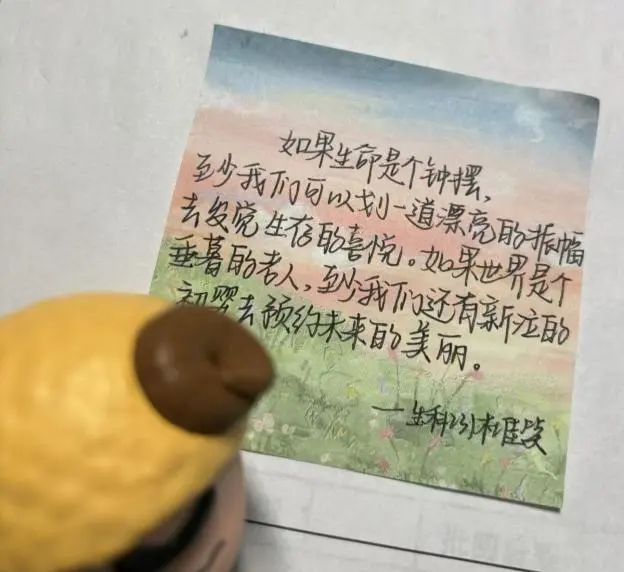 如果生命是个钟摆，
至少我们可以划一道漂亮的振幅
去发觉生存的喜悦。如果世界是个
垂暮的老人，至少我们还有新泣的
初婴去预约未来的美丽。
——生科